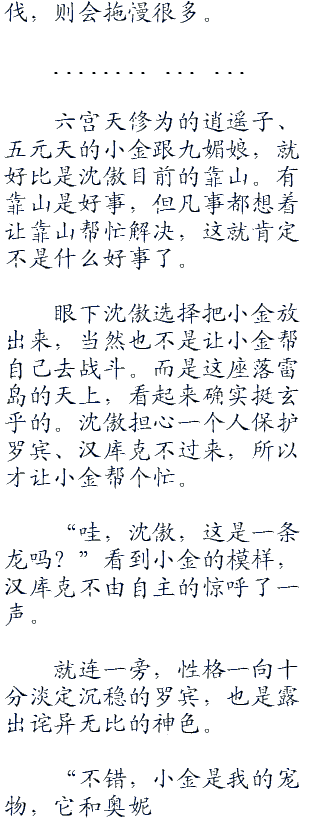 伐，则会拖慢很多。
········ ··· ···
六宫天修为的逍遥子、
五元天的小金跟九媚娘，就
好比是沈傲目前的靠山。有
靠山是好事，但凡事都想着
让靠山帮忙解决，这就肯定
不是什么好事了。
眼下沈傲选择把小金放
出来，当然也不是让小金帮
自己去战斗。而是这座落雷
岛的天上，看起来确实挺玄
乎的。沈傲担心一个人保护
罗宾、汉库克不过来，所以
才让小金帮个忙。
“哇，沈傲，这是一条
龙吗？”看到小金的模样，
汉库克不由自主的惊呼了一
声。
就连一旁，性格一向十
分淡定沉稳的罗宾，也是露
出诧异无比的神色。
“不错，小金是我的宠
物，它和奥妮